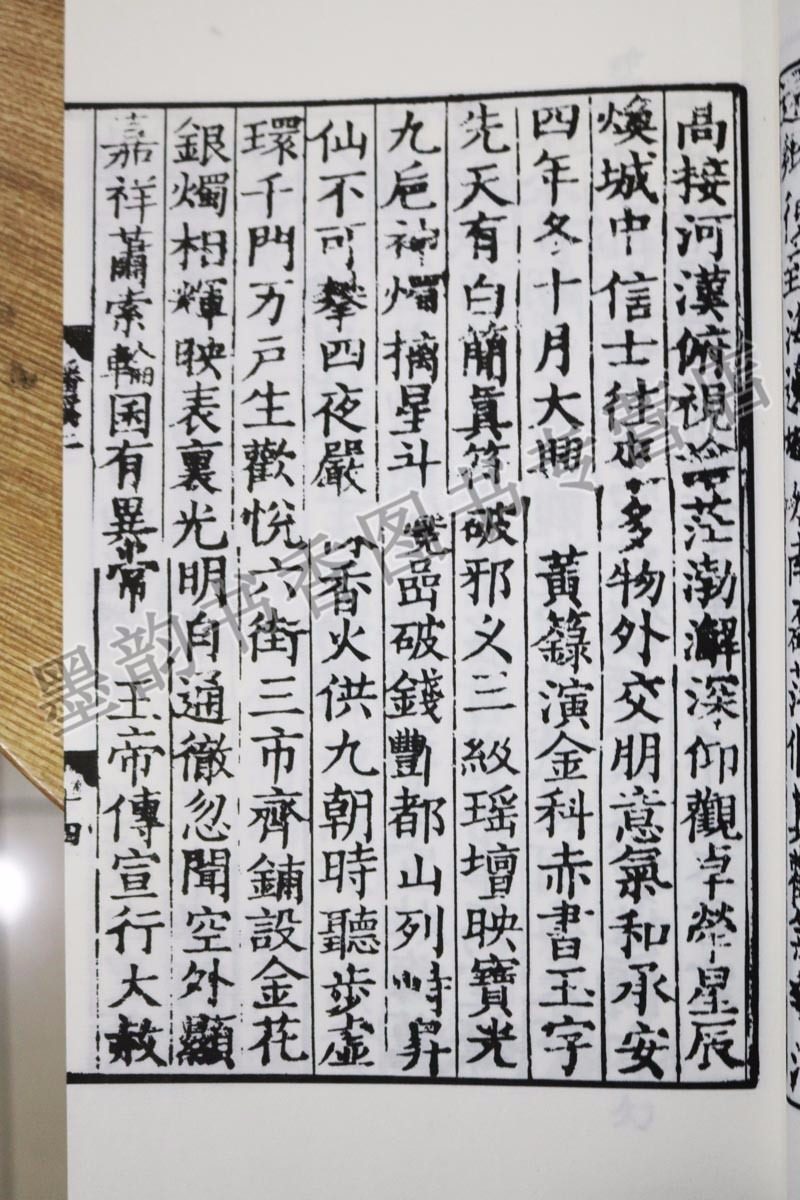 高接河漢俯視 茫渤澥深仰觀卓犖星辰
煥城中信士往來多物外交朋意氣和承安
四年冬十月大醮 黃籙演金科赤書玉字
先天有白簡真符破邪 三級瑶壇映寶光
九巵神燭摛星斗 破錢酆都山列 昇
仙不可攀四夜嚴 香火供九朝時聽步虛
環千門万戶生歡悅六街三市齊鋪設金花
銀燭相輝映表裏光明自通徹忽聞空外顯
嘉祥蕭索 囷有異常 玉帝傳宣行大赦
十四
墨韵书香图书专营店